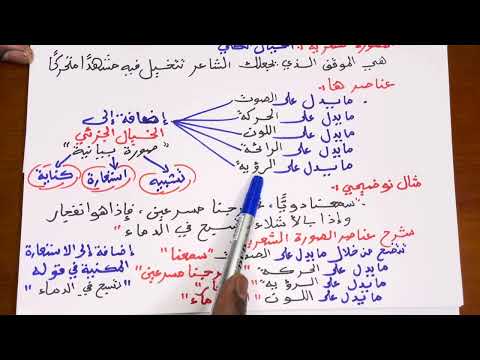 هي الموقف الذي يجعلك الشاعر تتخيل فيه مشهدًا متحركًا
عناصرها:
ما يدل على الصوت
ما يدل على الحركة
ما يدل على اللون
ما يدل على الرائحة
ما يدل على الرؤية
إضافة إلى
الخيال الجزئي
"صورة بيانية"
تشبيه
استعارة
كناية
مثال توضيحي:
سمعنا دويًّا، خرجنا مسرعين، فإذا هو انفجار
وإذا بالأشلاء تسبح في الدماء
شرح عناصر الصورة الشعرية
تتضح من خلال ما يدل على الصوت "سمعنا"
ما يدل على الحركة "خرجنا مسرعين"
ما يدل على الرؤية
ما يدل على اللون
إضافة إلى الاستعارة
المكنية في قوله
"تسبح في الدماء"